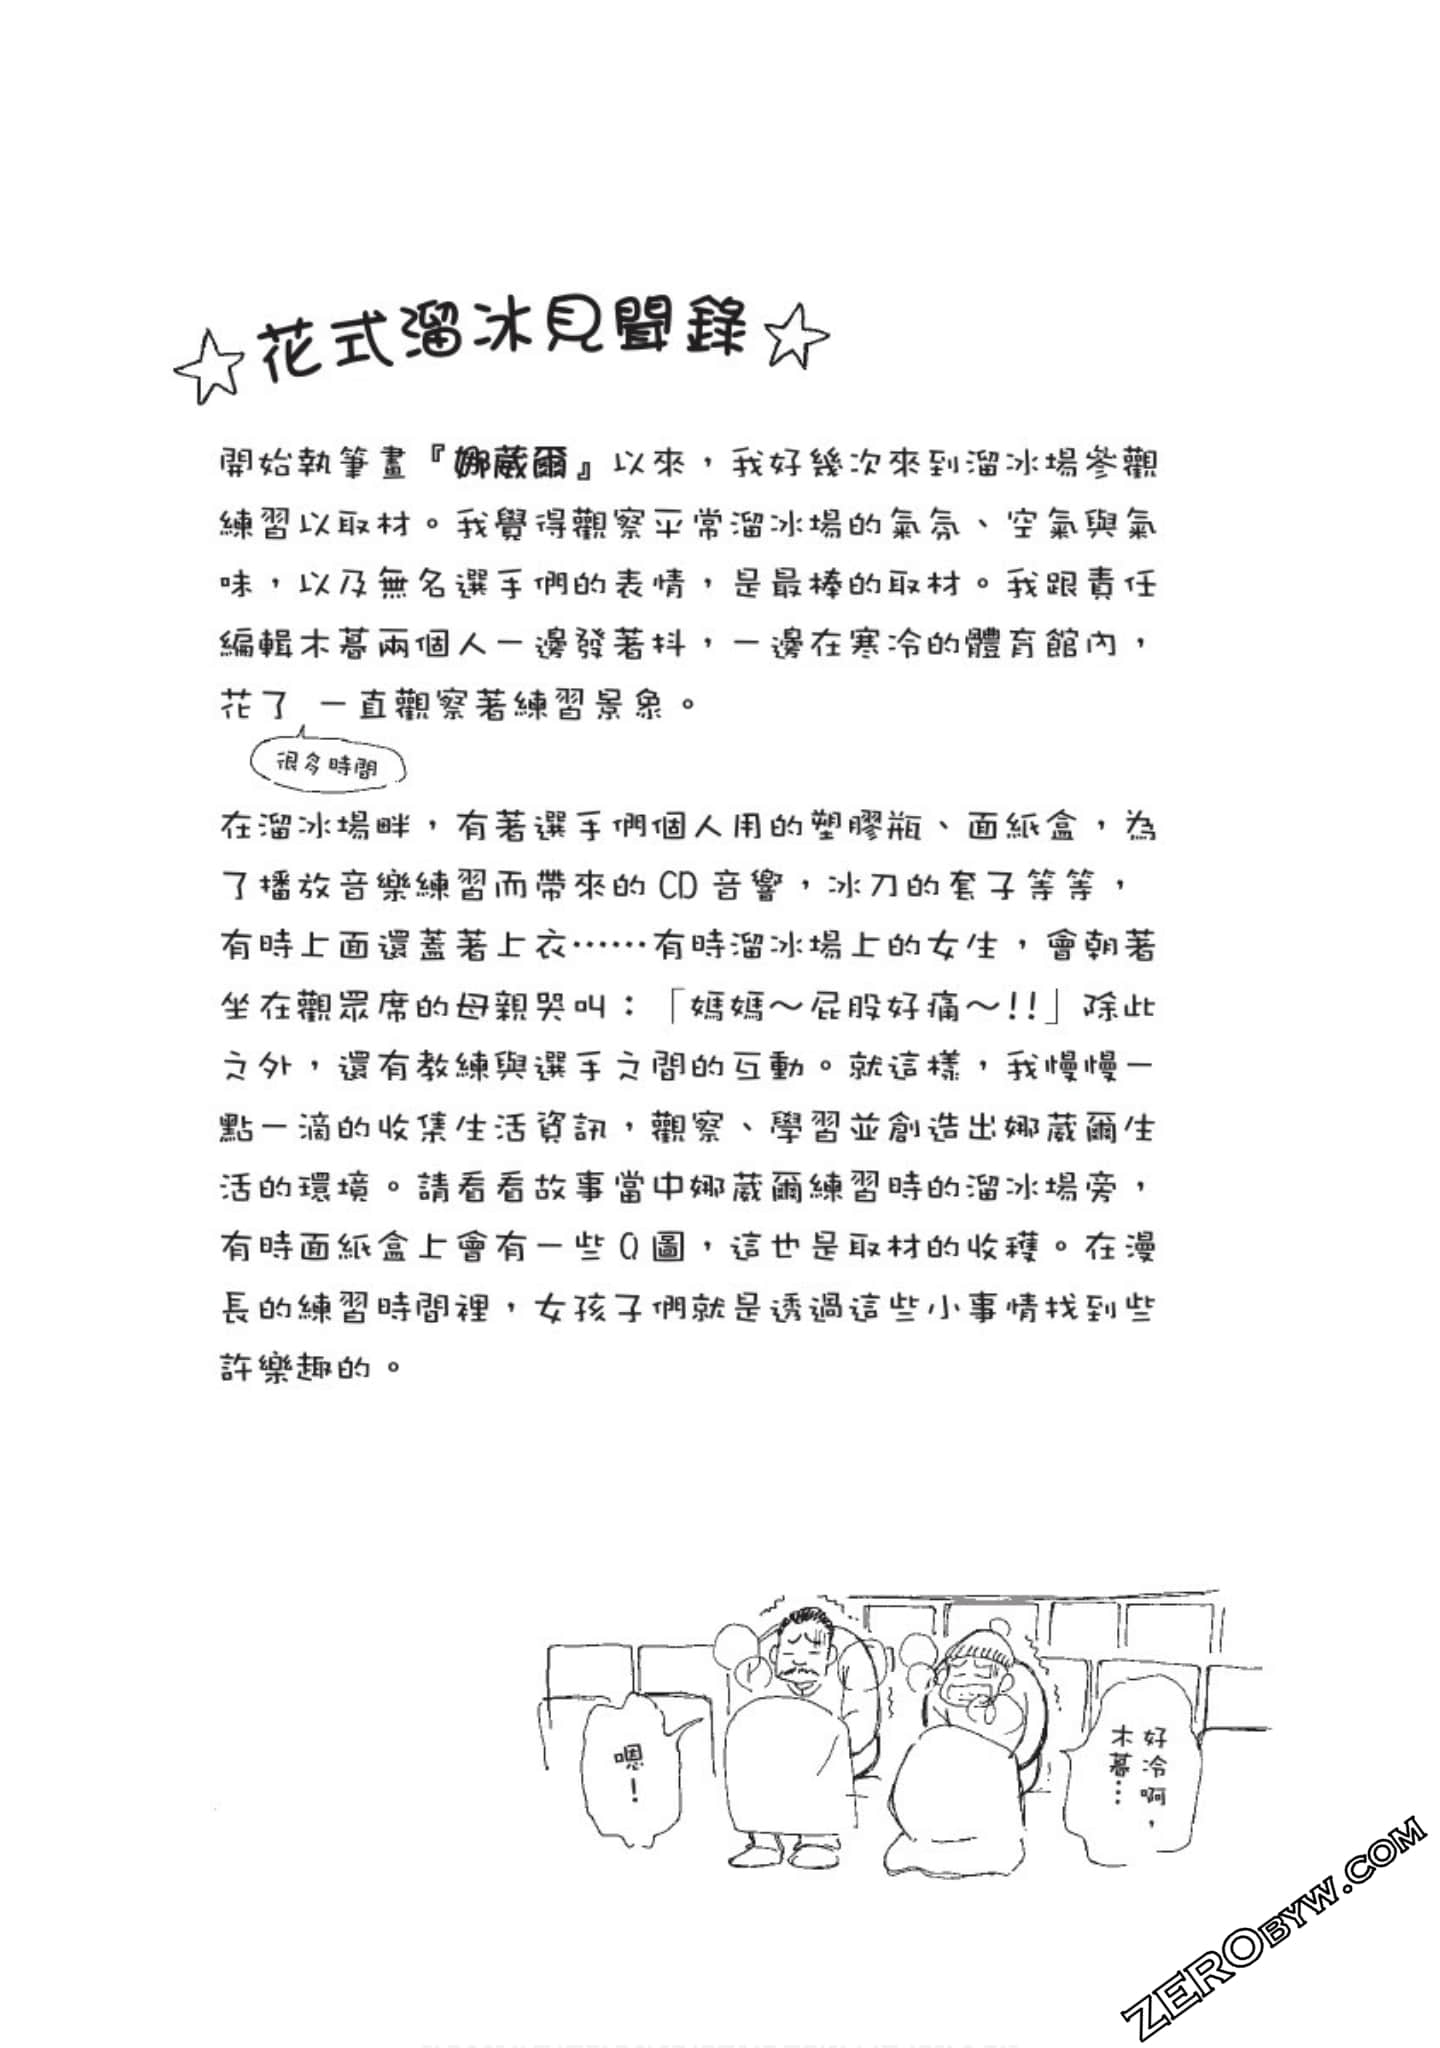 花式溜冰見聞錄
開始執筆畫『娜葳爾』以來，我好幾次來到溜冰場參觀
練習以取材。我覺得觀察平常溜冰場的氣氛、空氣與氣
味，以及無名選手們的表情，是最棒的取材。我跟責任
編輯木暮兩個人一邊發著抖，一邊在寒冷的體育館內，
花了 一直觀察著練習景象。
很多時間
在溜冰場畔，有著選手們個人用的塑膠瓶、面紙盒，為
了播放音樂練習而帶來的 CD 音響，冰刀的套子等等，
有時上面還蓋著上衣……有時溜冰場上的女生，會朝著
坐在觀眾席的母親哭叫：「媽媽～屁股好痛～!!」除此
之外，還有教練與選手之間的互動。就這樣，我慢慢一
點一滴的收集生活資訊，觀察、學習並創造出娜葳爾生
活的環境。請看看故事當中娜葳爾練習時的溜冰場旁，
有時面紙盒上會有一些 Q 圖，這也是取材的收穫。在漫
長的練習時間裡，女孩子們就是透過這些小事情找到些
許樂趣的。
好冷啊，
木暮…
嗯！
ZEROBYW.COM